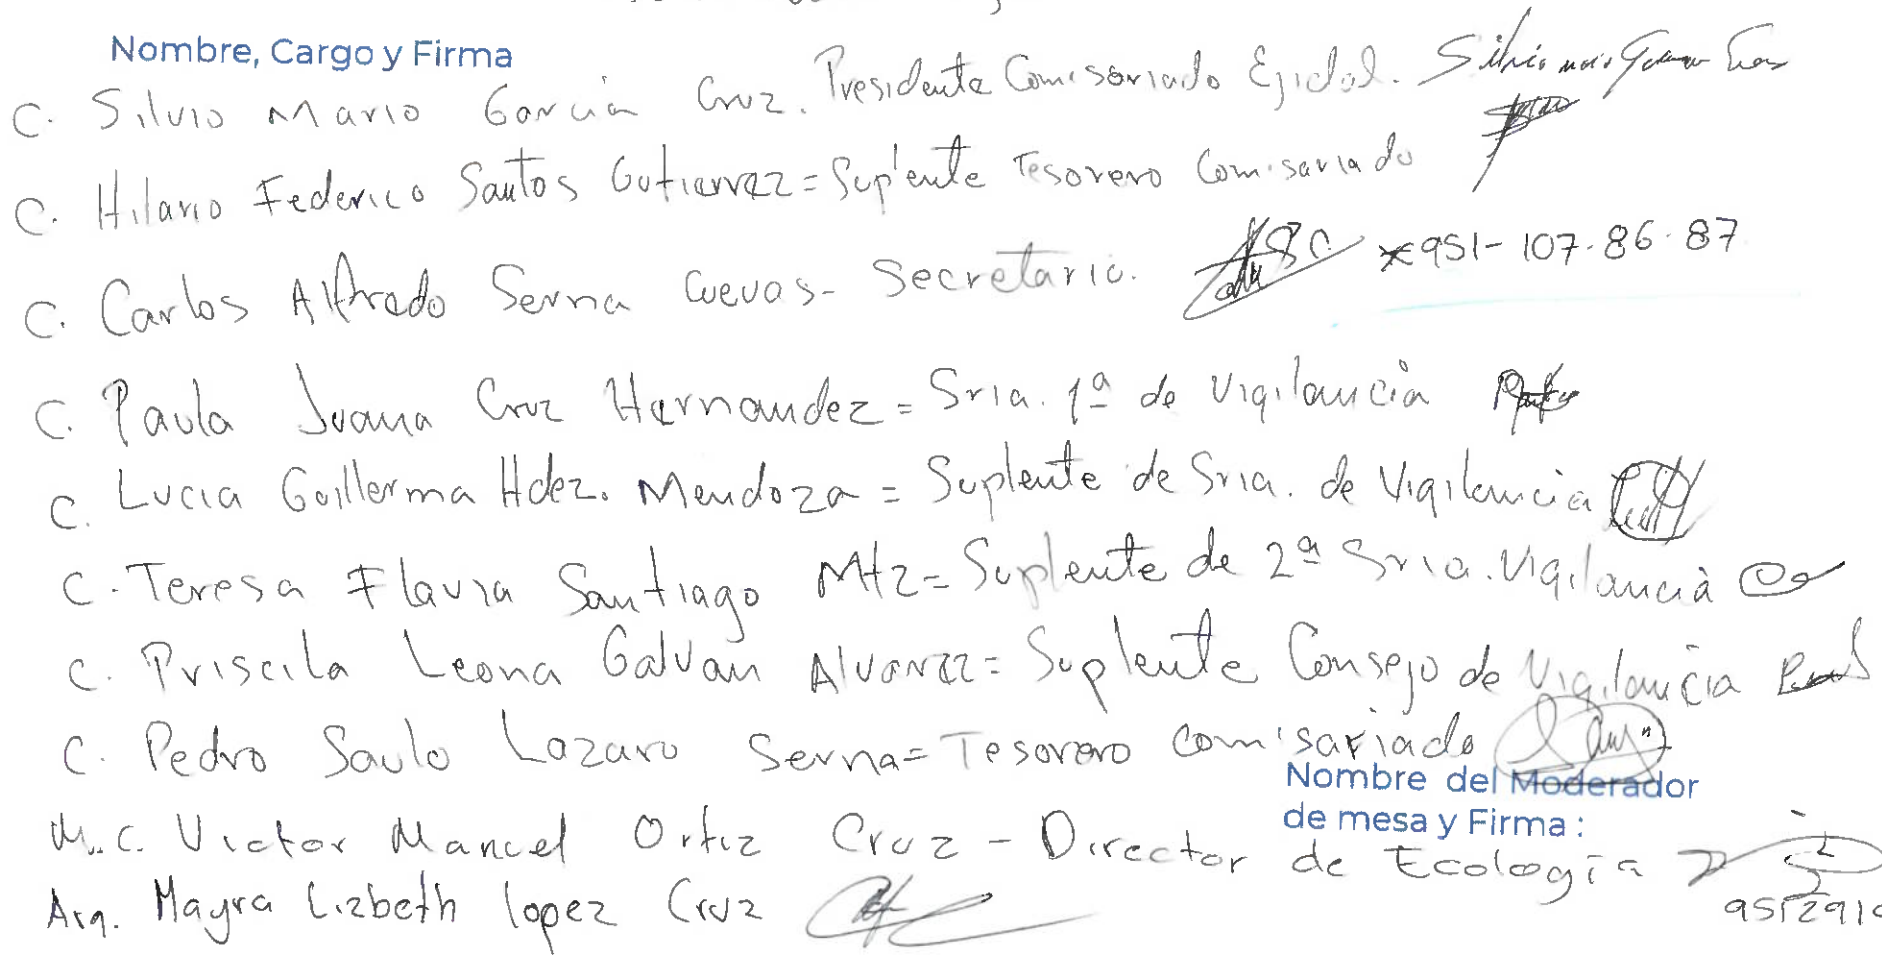 Nombre, Cargo y Firma
C. Silvio Mario García Cruz. Presidente Comisariado Ejidal.
C. Hilario Federico Santos Gutierrez = Suplente Tesorero Comisariado
C. Carlos Alfredo Serna Cuevas - Secretario. x951-107-86-87
C. Paula Juana Cruz Hernandez = Sria. 1ª de Vigilancia
C. Lucia Guillerma Hdez. Mendoza = Suplente de Sria. de Vigilancia
C. Teresa Flavia Santiago Mtz = Suplente de 2ª Sria. Vigilancia
C. Priscila Leona Galvan Alvarez = Suplente Consejo de Vigilancia
C. Pedro Saulo Lazaro Serna = Tesorero comisariado
Nombre del Moderador
de mesa y Firma :
M.C. Victor Manuel Ortiz Cruz - Director de Ecología
Arq. Mayra Lizbeth lopez Cruz